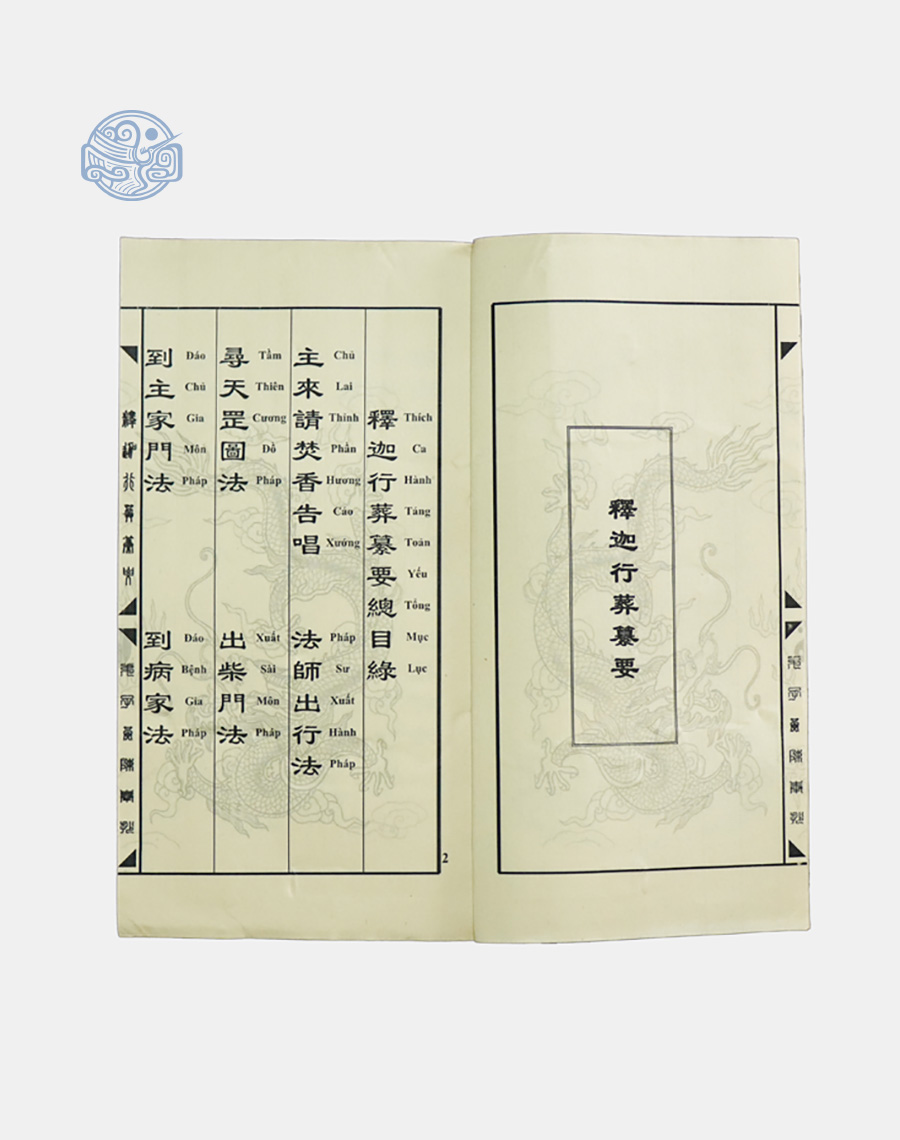 釋迦行葬纂要
釋迦行葬纂要總目綠
Thích Ca Hành Táng Toản Yếu Tổng Mục Lục
主來請焚香告唱
Chủ Lai Thỉnh Phần Hương Cáo Xướng
法師出行法
Pháp Sư Xuất Hành Pháp
尋天罡圖法
Tầm Thiên Cương Đồ Pháp
出柴門法
Xuất Sài Môn Pháp
到主家門法
Đáo Chủ Gia Môn Pháp
到病家法
Đáo Bệnh Gia Pháp
釋迦行葬纂要
2